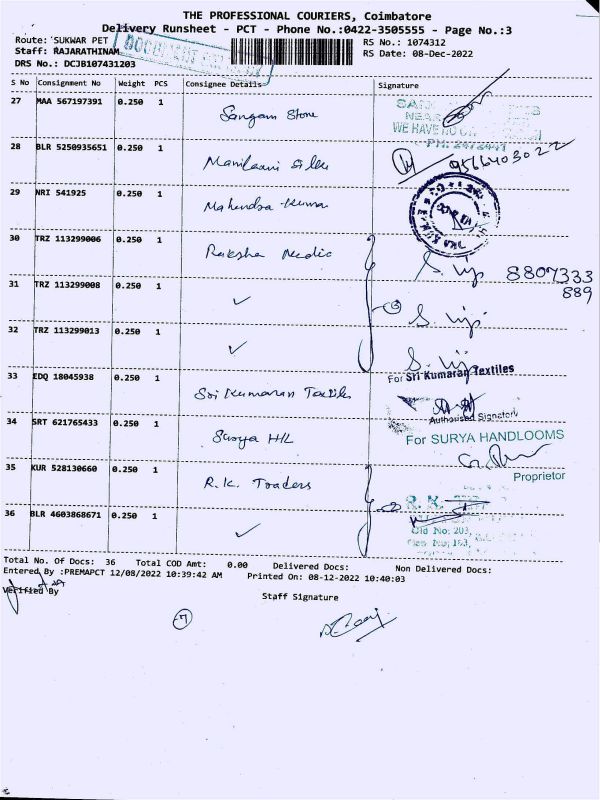 THE PROFESSIONAL COURIERS, Coimbatore
Delivery Runsheet - PCT - Phone No.:0422-3505555 - Page No.:3
Route: SUKWAR PET
RS No.: 1074312
Staff: RAJARATHINAM
RS Date: 08-Dec-2022
DRS No.: DCJB107431203
S No Consignment No Weight PCS Consignee Details Signature
27 MAA 567197391 0.250 1 Sangam Store
WE HAVE NO
28 BLR 5250935651 0.250 1
29 NRI 541925 0.250 1 Mahendra Kumar
30 TRZ 113299006 0.250 1 Raksha Medic
8807333
889
31 TRZ 113299008 0.250 1 ✓
3
32 TRZ 113299013 0.250 1 ✓
For Sri Kumaran Textiles
33 EDQ 18045938 0.250 1 Sri Kumaran
Authorised Signatory
34 SRT 621765433 0.250 1 Surya H/L
For SURYA HANDLOOMS
Proprietor
35 KUR 528130660 0.250 1 R.K. Traders
R. K.
36 BLR 4603868671 0.250 1 ✓
Old No: 203,
Total No. Of Docs: 36 Total COD Amt: 0.00 Delivered Docs: Non Delivered Docs:
Entered By :PREMAPCT 12/08/2022 10:39:42 AM Printed On: 08-12-2022 10:40:03
Verified By
Staff Signature
7